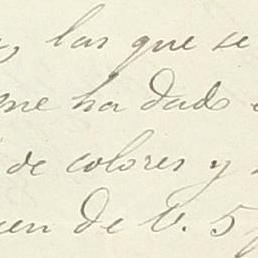 las que se
me ha dado
de colores y
en de V. 5